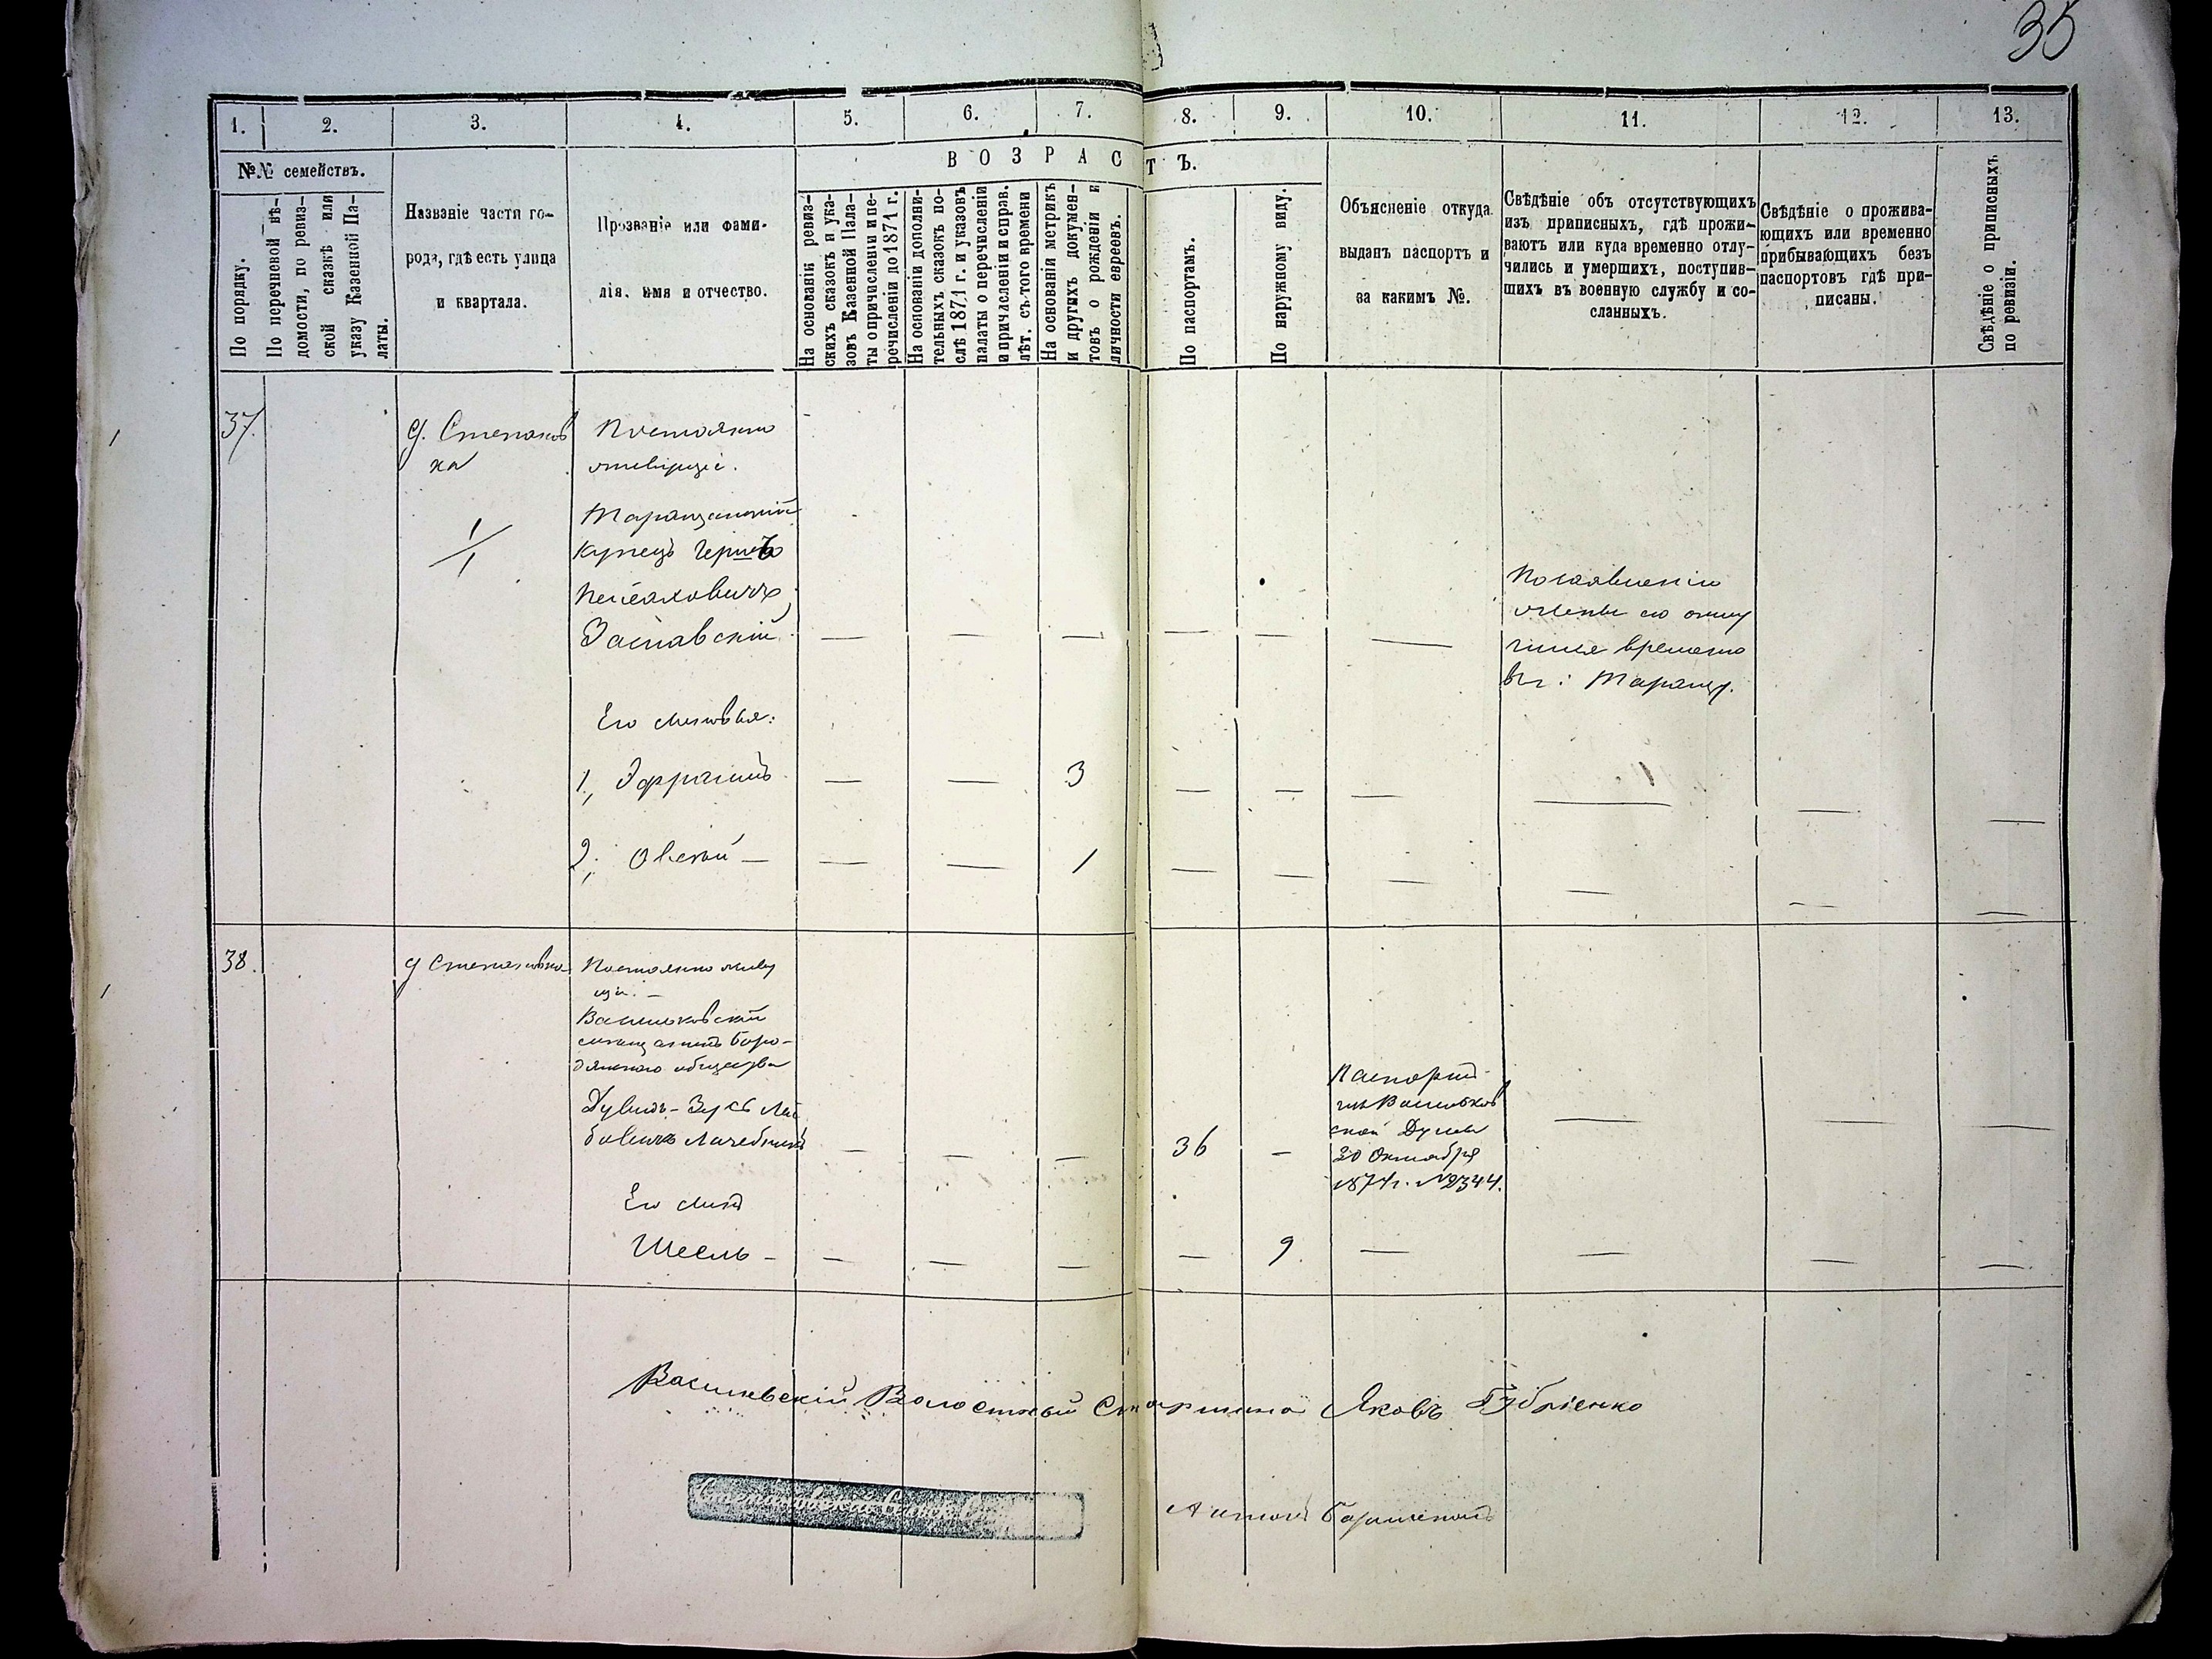 35
1. 2. 3. 4. 5. 6. 7. 8. 9. 10. 11. 12. 13.
№№ семействъ.
По порядку.
По перечневой вѣ-
домости, по ревиз-
ской сказкѣ или
указу Казенной Па-
латы.
Названіе части го-
рода, гдѣ есть улица
и квартала.
Прозваніе или фами-
лія, имя и отчество.
ВОЗРАСТЪ.
На основаніи ревиз-
скихъ сказокъ и ука-
зовъ Казенной Пала-
ты о причисленіи и пе-
речисленіи до 1871 г.
На основаніи дополни-
тельныхъ сказокъ по-
слѣ 1871 г. и указовъ
палаты о перечисленіи
и причисленіи и справ.
лѣт. съ того времени
На основаніи метрикъ
и другихъ докумен-
товъ о рожденіи и
личности евреевъ.
По паспортамъ.
По наружному виду.
Объясненіе откуда
выданъ паспортъ и
за какимъ №.
Свѣдѣніе объ отсутствующихъ
изъ приписныхъ, гдѣ прожи-
ваютъ или куда временно отлу-
чились и умершихъ, поступив-
шихъ въ военную службу и со-
сланныхъ.
Свѣдѣніе о прожива-
ющихъ или временно
прибывающихъ безъ
паспортовъ гдѣ при-
писаны.
Свѣдѣніе о приписныхъ
по ревизіи.
37.
д. Степанов
ка
1/1
Постоянно
живущіе.
Таращанскій
купецъ Герш
Пейсаховичъ
Заславскій — — — — — —
По заявленію
жены его отлу
чился временно
въ г: Таращу.
Его сыновья:
1, Эфраимъ — — 3 — — — — — —
2, Овсей — — — 1 — — — — — —
38.
д Степановка
Постоянно живу
щіе. —
Васильковскій
мѣщанинъ Боро-
дянского общества
Дувидъ-Зусь Лей
бовичъ — — — 36 — — — —
Паспортъ
изъ Васильков
ской Думы
30 Октября
1874 г. №2344.
Его сынъ
Шесль — — — — — 9. — — — —
Василевскій Волостный Старшина Яковъ